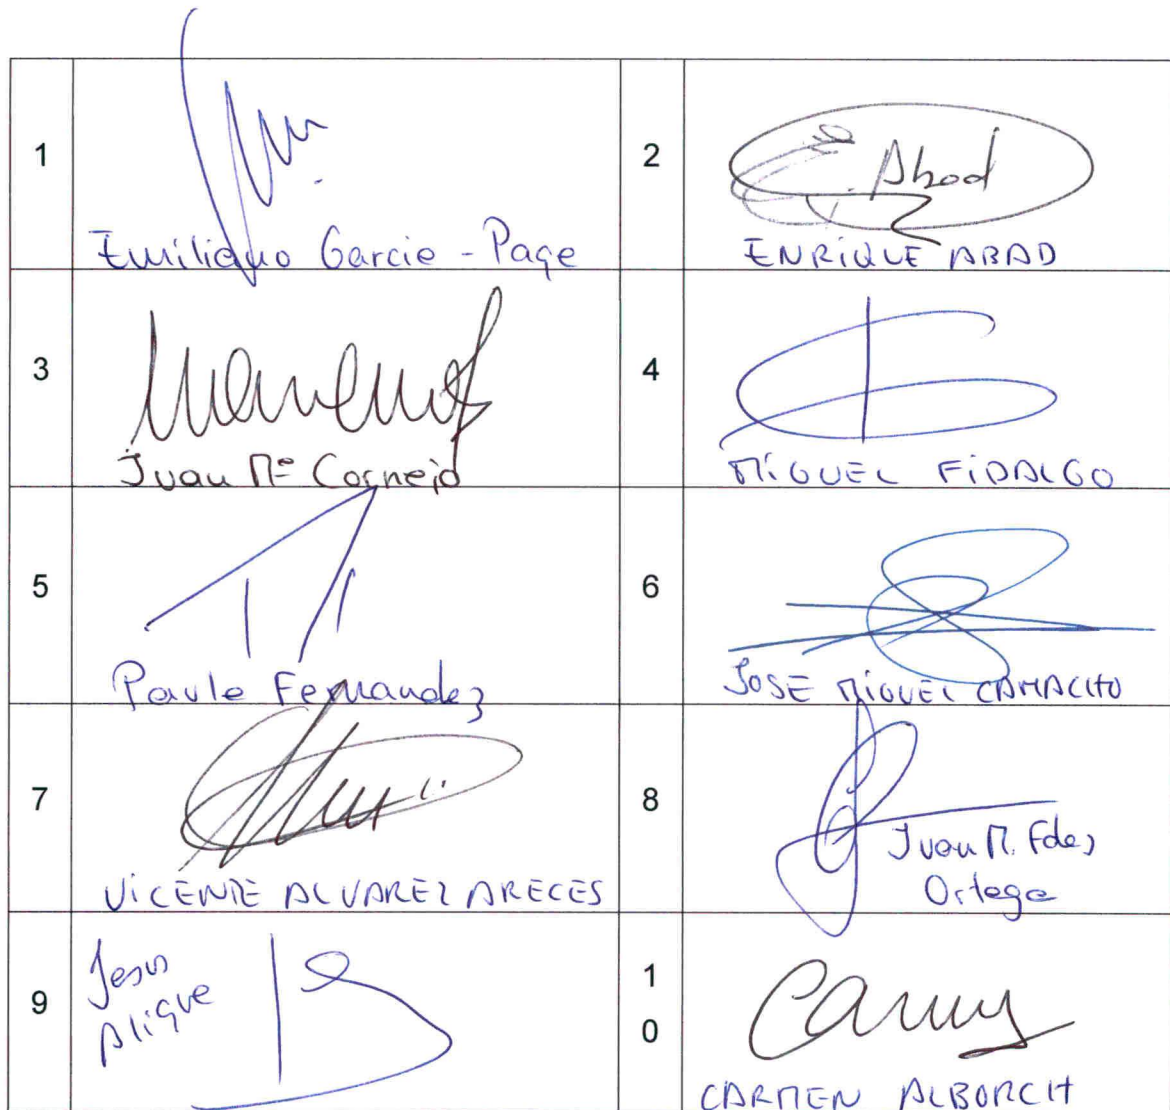 1
Emiliano Garcia - Page
2
E. Abad
ENRiQUE ABAD
3
Juan Mª Cornejo
4
MiGUEL FiDALGO
5
Paula Fernandez
6
JOSE MiGUEL CAMACHO
7
ViCENTE ALVAREZ ARECES
8
Juan M. Fdez
Ortega
9
Jesus
Alique
10
CARMEN ALBORCH